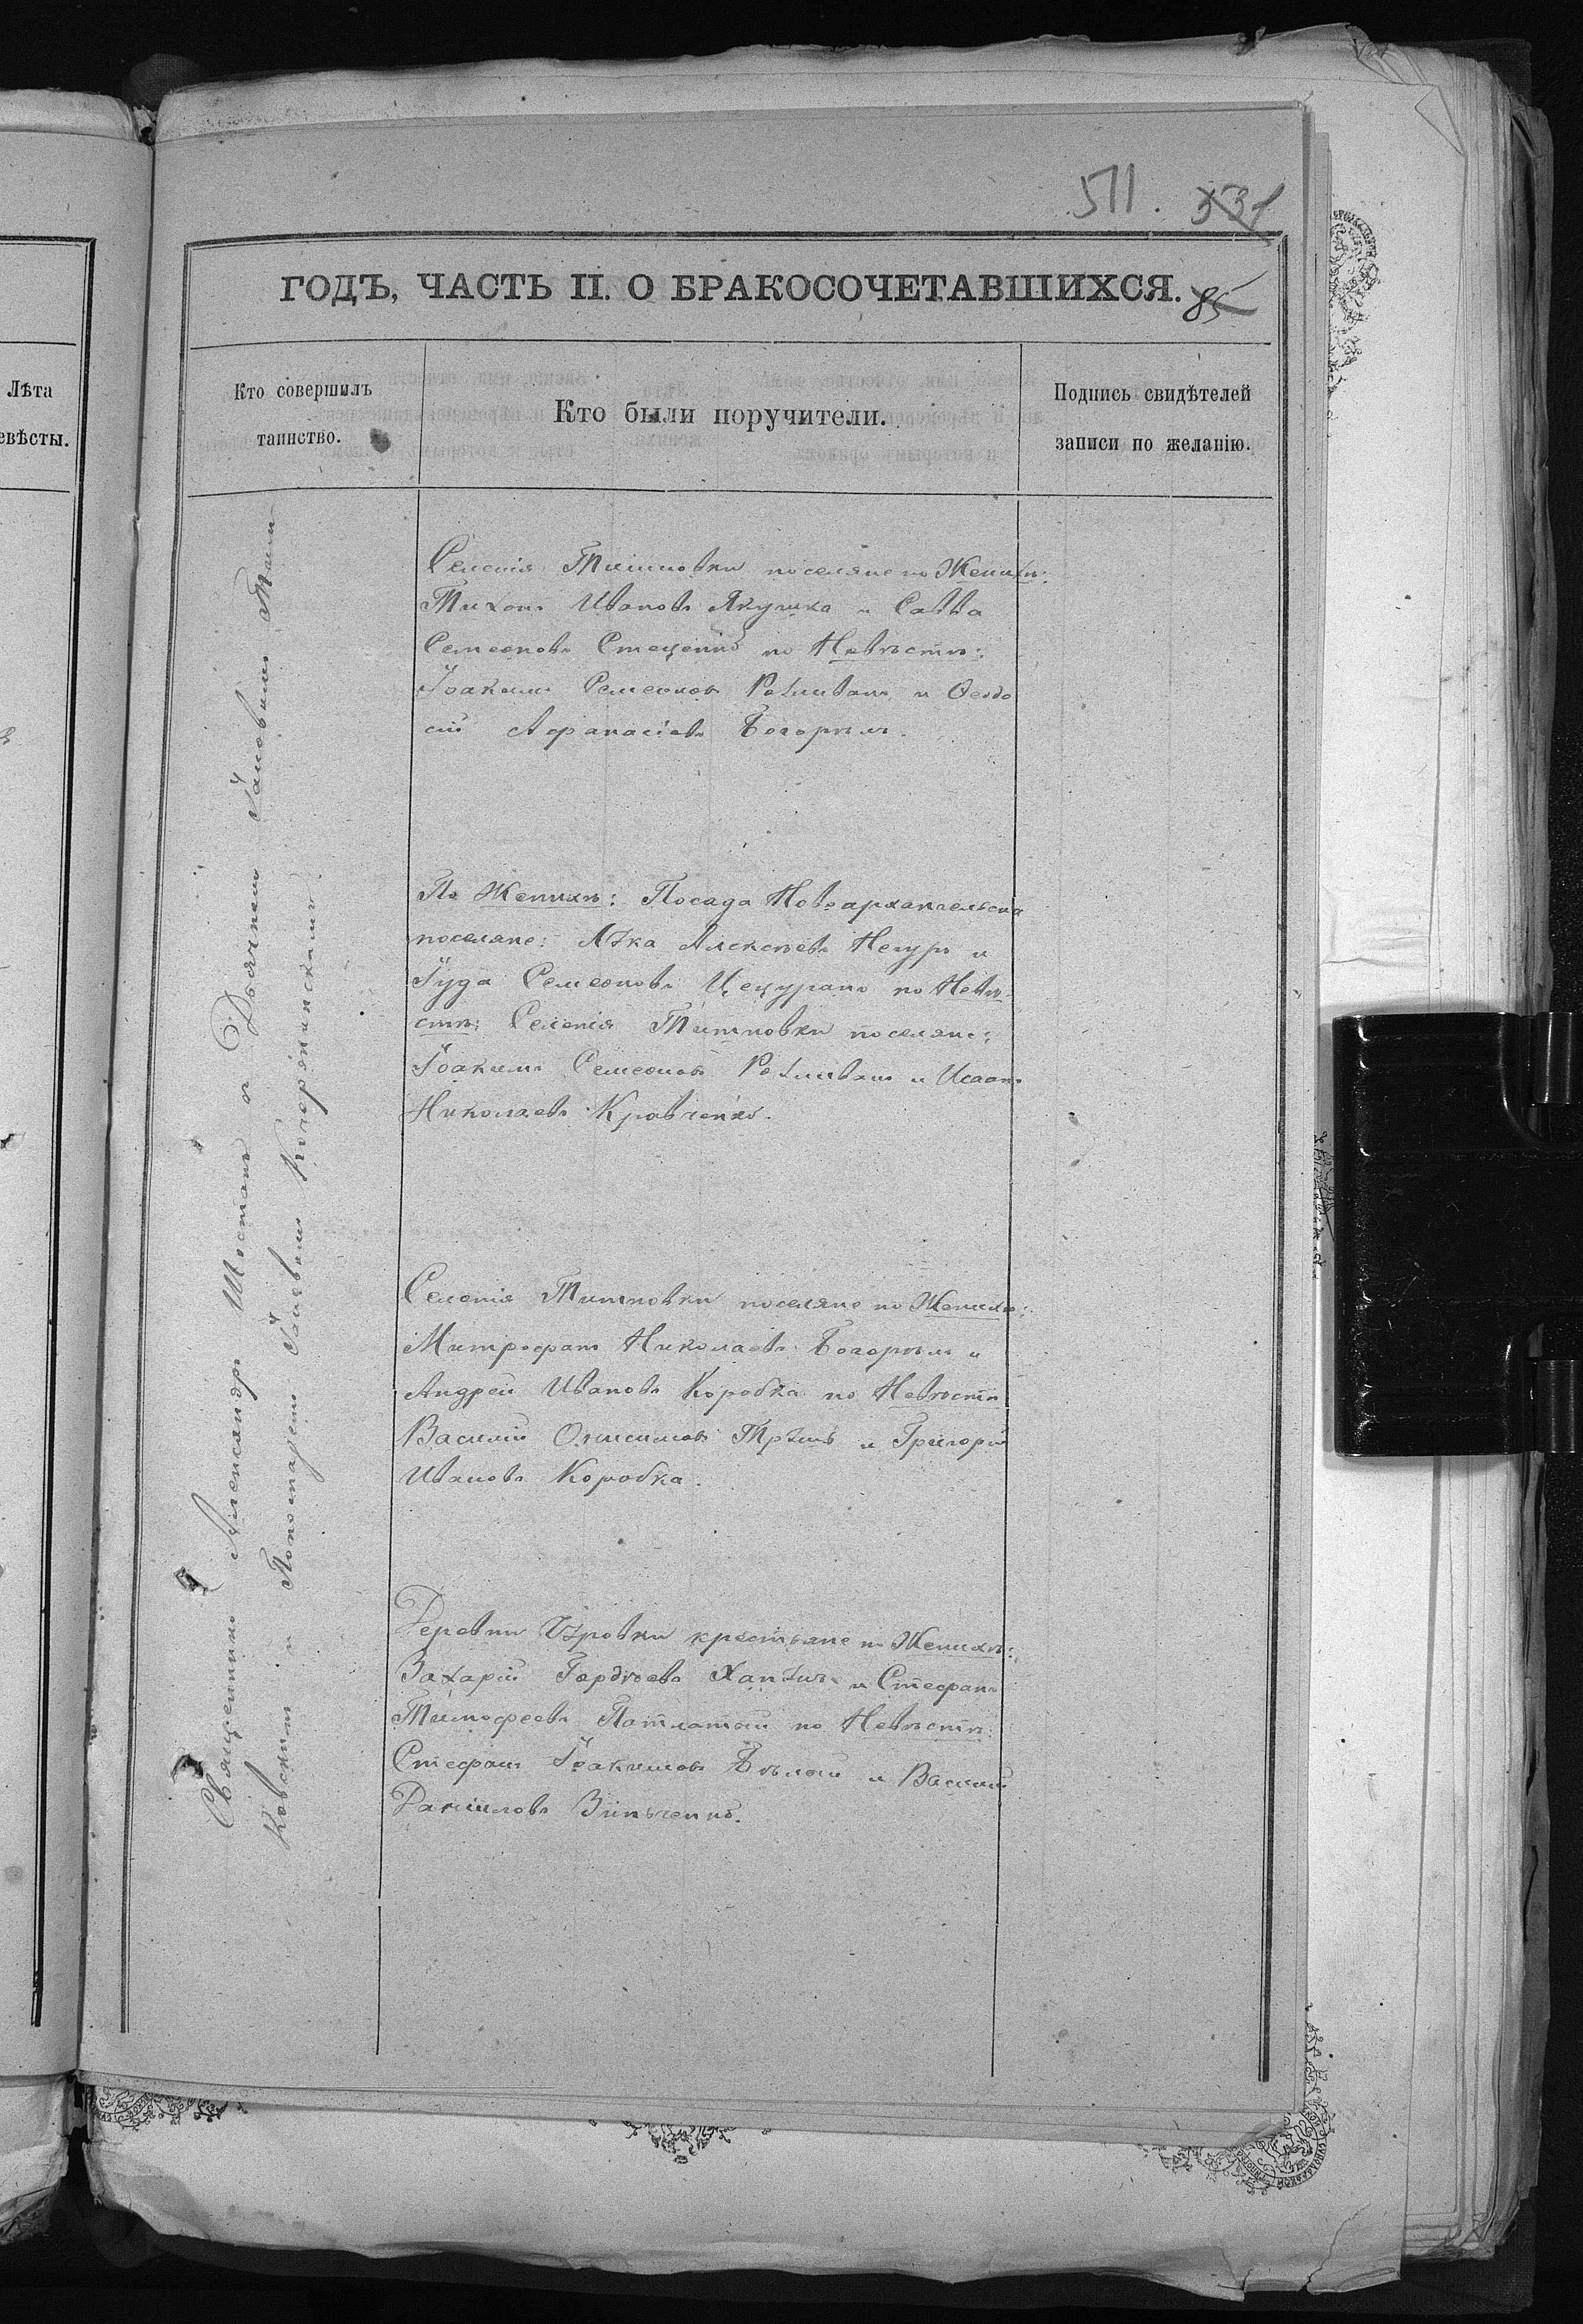 511. 531
ГОДЪ, ЧАСТЬ II. О БРАКОСОЧЕТАВШИХСЯ. 85
Лѣта
евѣсты.
Кто совершилъ
таинство.
Кто были поручители.
Подпись свидѣтелей
записи по желанію.
Священникъ Александръ Шостакъ с Дьячкомъ
ковскимъ и Пономаремъ
Селенія Тишковки поселяне по Женихѣ:
Тихонъ Ивановъ Якушка и Савва
Семеоновъ Стеценко по Невѣстѣ:
Іоакимъ Семеоновъ и Феодо
сій Афанасіевъ Погорѣлъ.
По Женихѣ: Посада Новоархангельска
поселяне: Лука Алексѣевъ Негуръ и
Іуда Семеоновъ Цецуранъ по Невѣ-
стѣ: Селенія Тишковки поселяне:
Іоакимъ Семеоновъ и Исаакъ
Николаевъ Кравченко.
Селенія Тишковки поселяне по Женихѣ:
Митрофанъ Николаевъ Погорѣлъ и
Андрей Ивановъ Коробка по Невѣстѣ
Василій Онисимовъ и Григорій
Ивановъ Коробка.
Деревни крестьяне по Женихѣ:
Захарій Гордѣевъ и Стефанъ
Тимофеевъ Патлатый по Невѣстѣ:
Стефанъ Іоакимовъ Бѣлый и Василій
Даниловъ Зинченко.